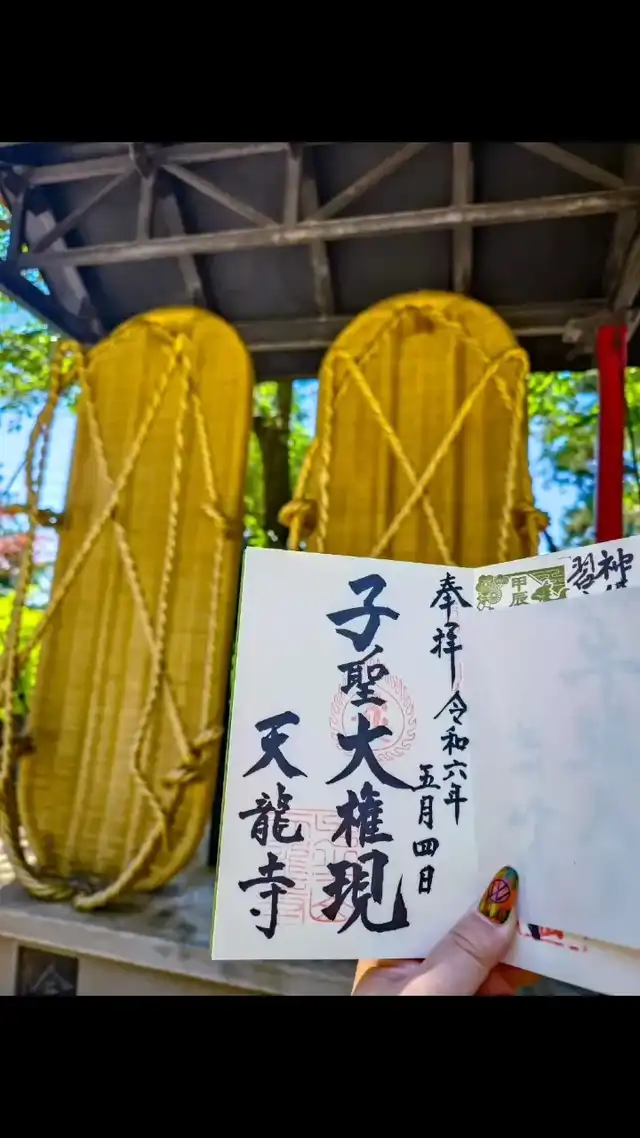 神
習
甲辰
奉拝 令和六年
五月四日
子聖大権現
天龍寺